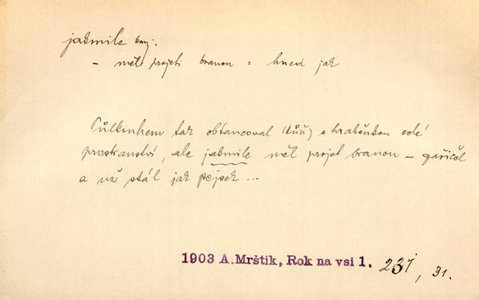 jakmile konj.
– měl projeti branou = hned jak
Půlkruhem tak obtancoval (kůň) s bratěnkou celé
prostranství, ale jakmile měl projet branou –
a už stál jak pejsek ...
1903 A. Mrštík, Rok na vsi 1. 231, 31.